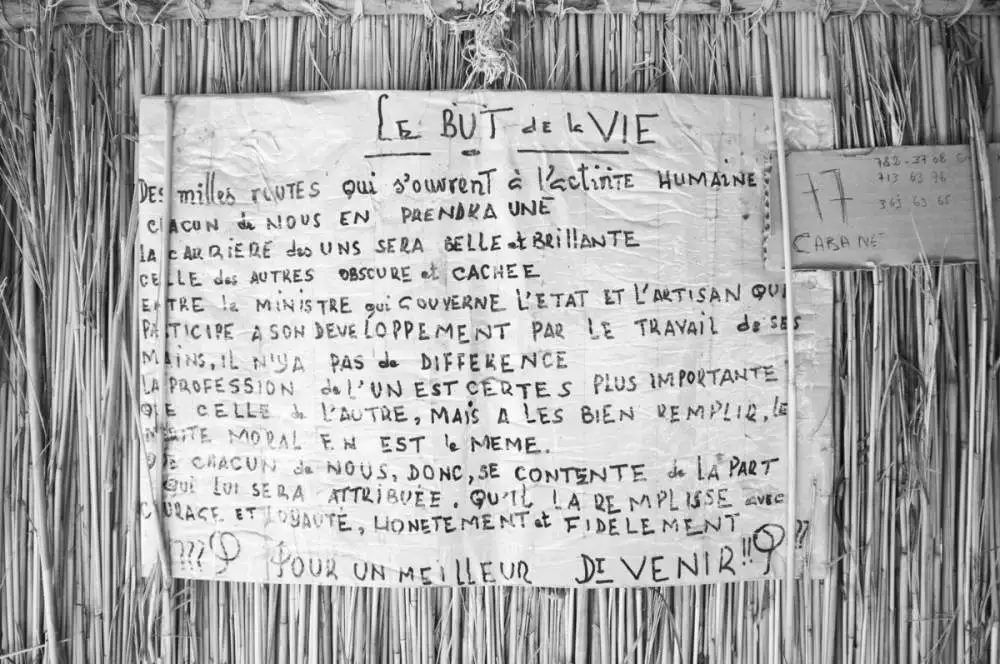 LE BUT de la VIE
DES milles ROUTES qui s'ouvrent à l'actinte HUMAINE
CHACUN de NOUS EN PRENDRA UNE
LA CARRIERE des UNS SERA BELLE et BRILLANTE
CELLE des AUTRES OBSCURE et CACHEE
ENTRE le MINISTRE qui GOUVERNE L'ETAT ET L'ARTISAN QUI
PARTICIPE A SON DEVELOPPEMENT PAR LE TRAVAIL de SES
MAINS, IL N'YA PAS de DIFFERENCE
LA PROFESSION de L'UN EST CERTES PLUS IMPORTANTE
QUE CELLE de L'AUTRE, MAIS A LES BIEN REMPLIR, le
MERITE MORAL EN EST le MEME.
QUE CHACUN de NOUS, DONC, SE CONTENTE de LA PART
QUI LUI SERA ATTRIBUÉE. QU'IL LA REMPLISSE avec
COURAGE ET LOYAUTÉ, HONETEMENT et FIDELEMENT
??? POUR UN MEILLEUR DEVENIR!! ??
77
782-37 08
713 63 76
363 63 65
CABANE